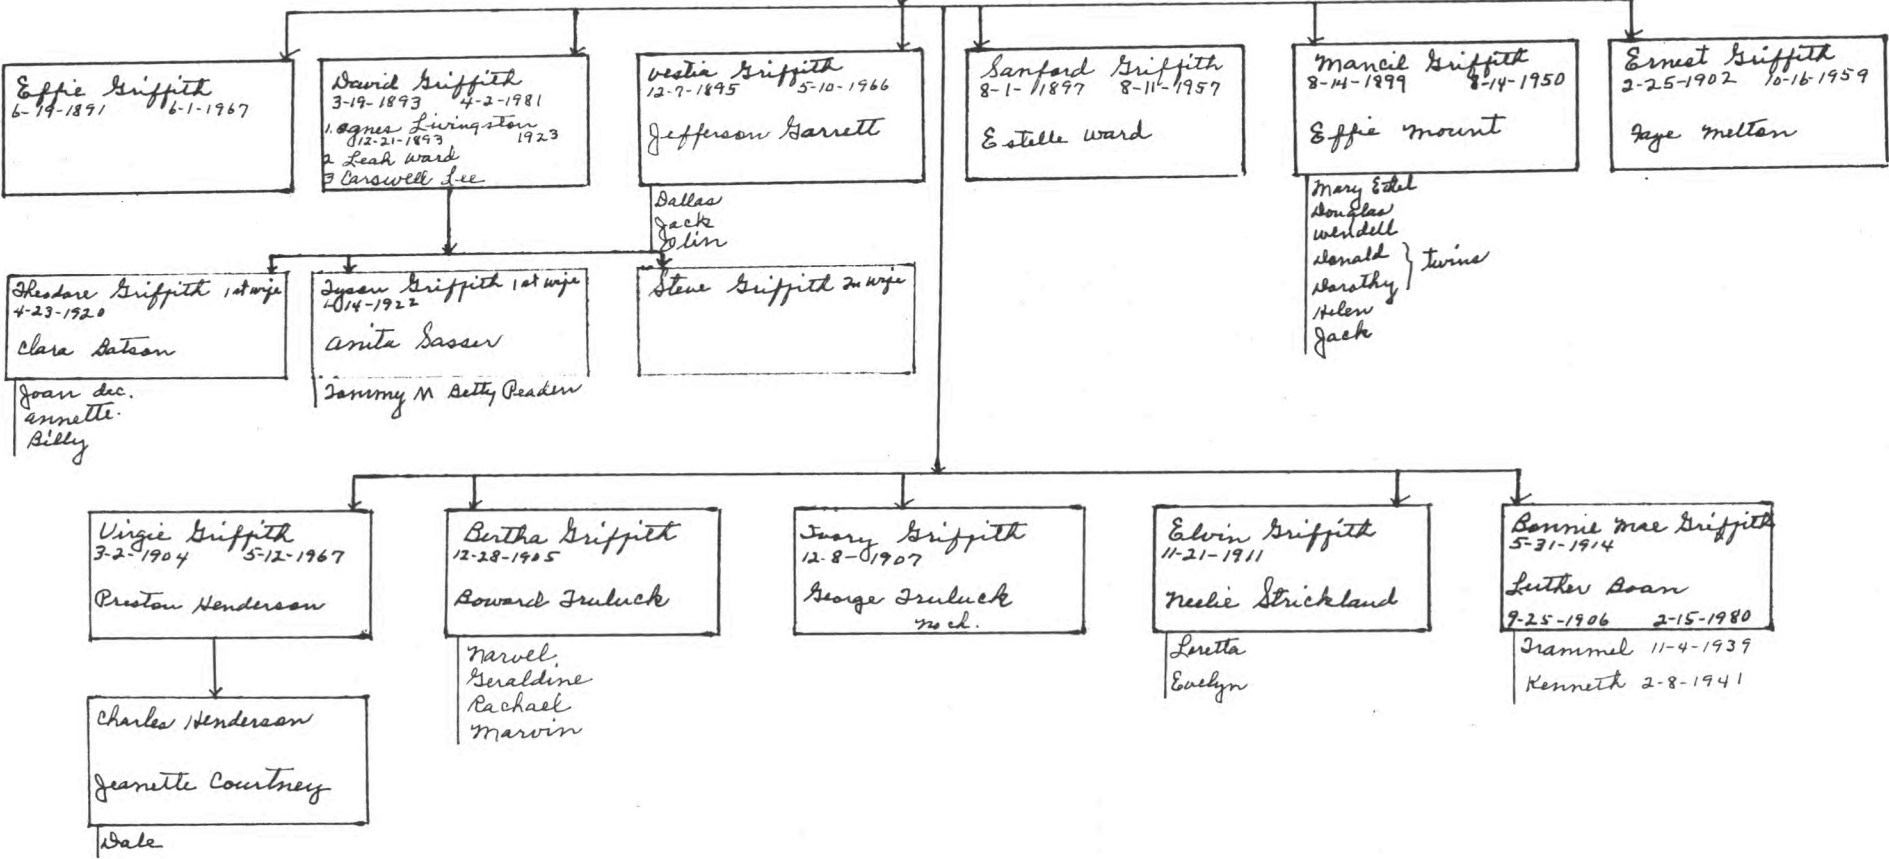 Effie Griffith
6-19-1891 6-1-1967
David Griffith
3-19-1893 4-2-1981
1. Agnes Livingston
12-21-1893 1923
2 Leah Ward
3 Carswell Lee
Vestia Griffith
12-7-1895 5-10-1966
Jefferson Garrett
Dallas
Jack
Olin
Sanford Griffith
8-1-1897 8-11-1957
Estelle Ward
Mancil Griffith
8-14-1899 8-14-1950
Effie Mount
Mary Ethel
Douglas
Wendell
Donald
Dorothy
} twins
Helen
Jack
Ernest Griffith
2-25-1902 10-16-1959
Faye Melton
Theodore Griffith 1st wife
4-23-1920
Clara Batson
Joan dec.
Annette.
Billy
Tyson Griffith 1st wife
14-1922
Anita Sasser
Tommy M Betty Peaden
Steve Griffith 2n wife
Virgie Griffith
3-2-1904 5-12-1967
Preston Henderson
Charles Henderson
Jeanette Courtney
Dale
Bertha Griffith
12-28-1905
Boward Truluck
Narvel
Geraldine
Rachael
Marvin
Ivory Griffith
12-8-1907
George Truluck
no ch.
Elvin Griffith
11-21-1911
Neelie Strickland
Loretta
Evelyn
Bonnie Mae Griffith
5-31-1914
Luther Boan
9-25-1906 2-15-1980
Trammel 11-4-1939
Kenneth 2-8-1941